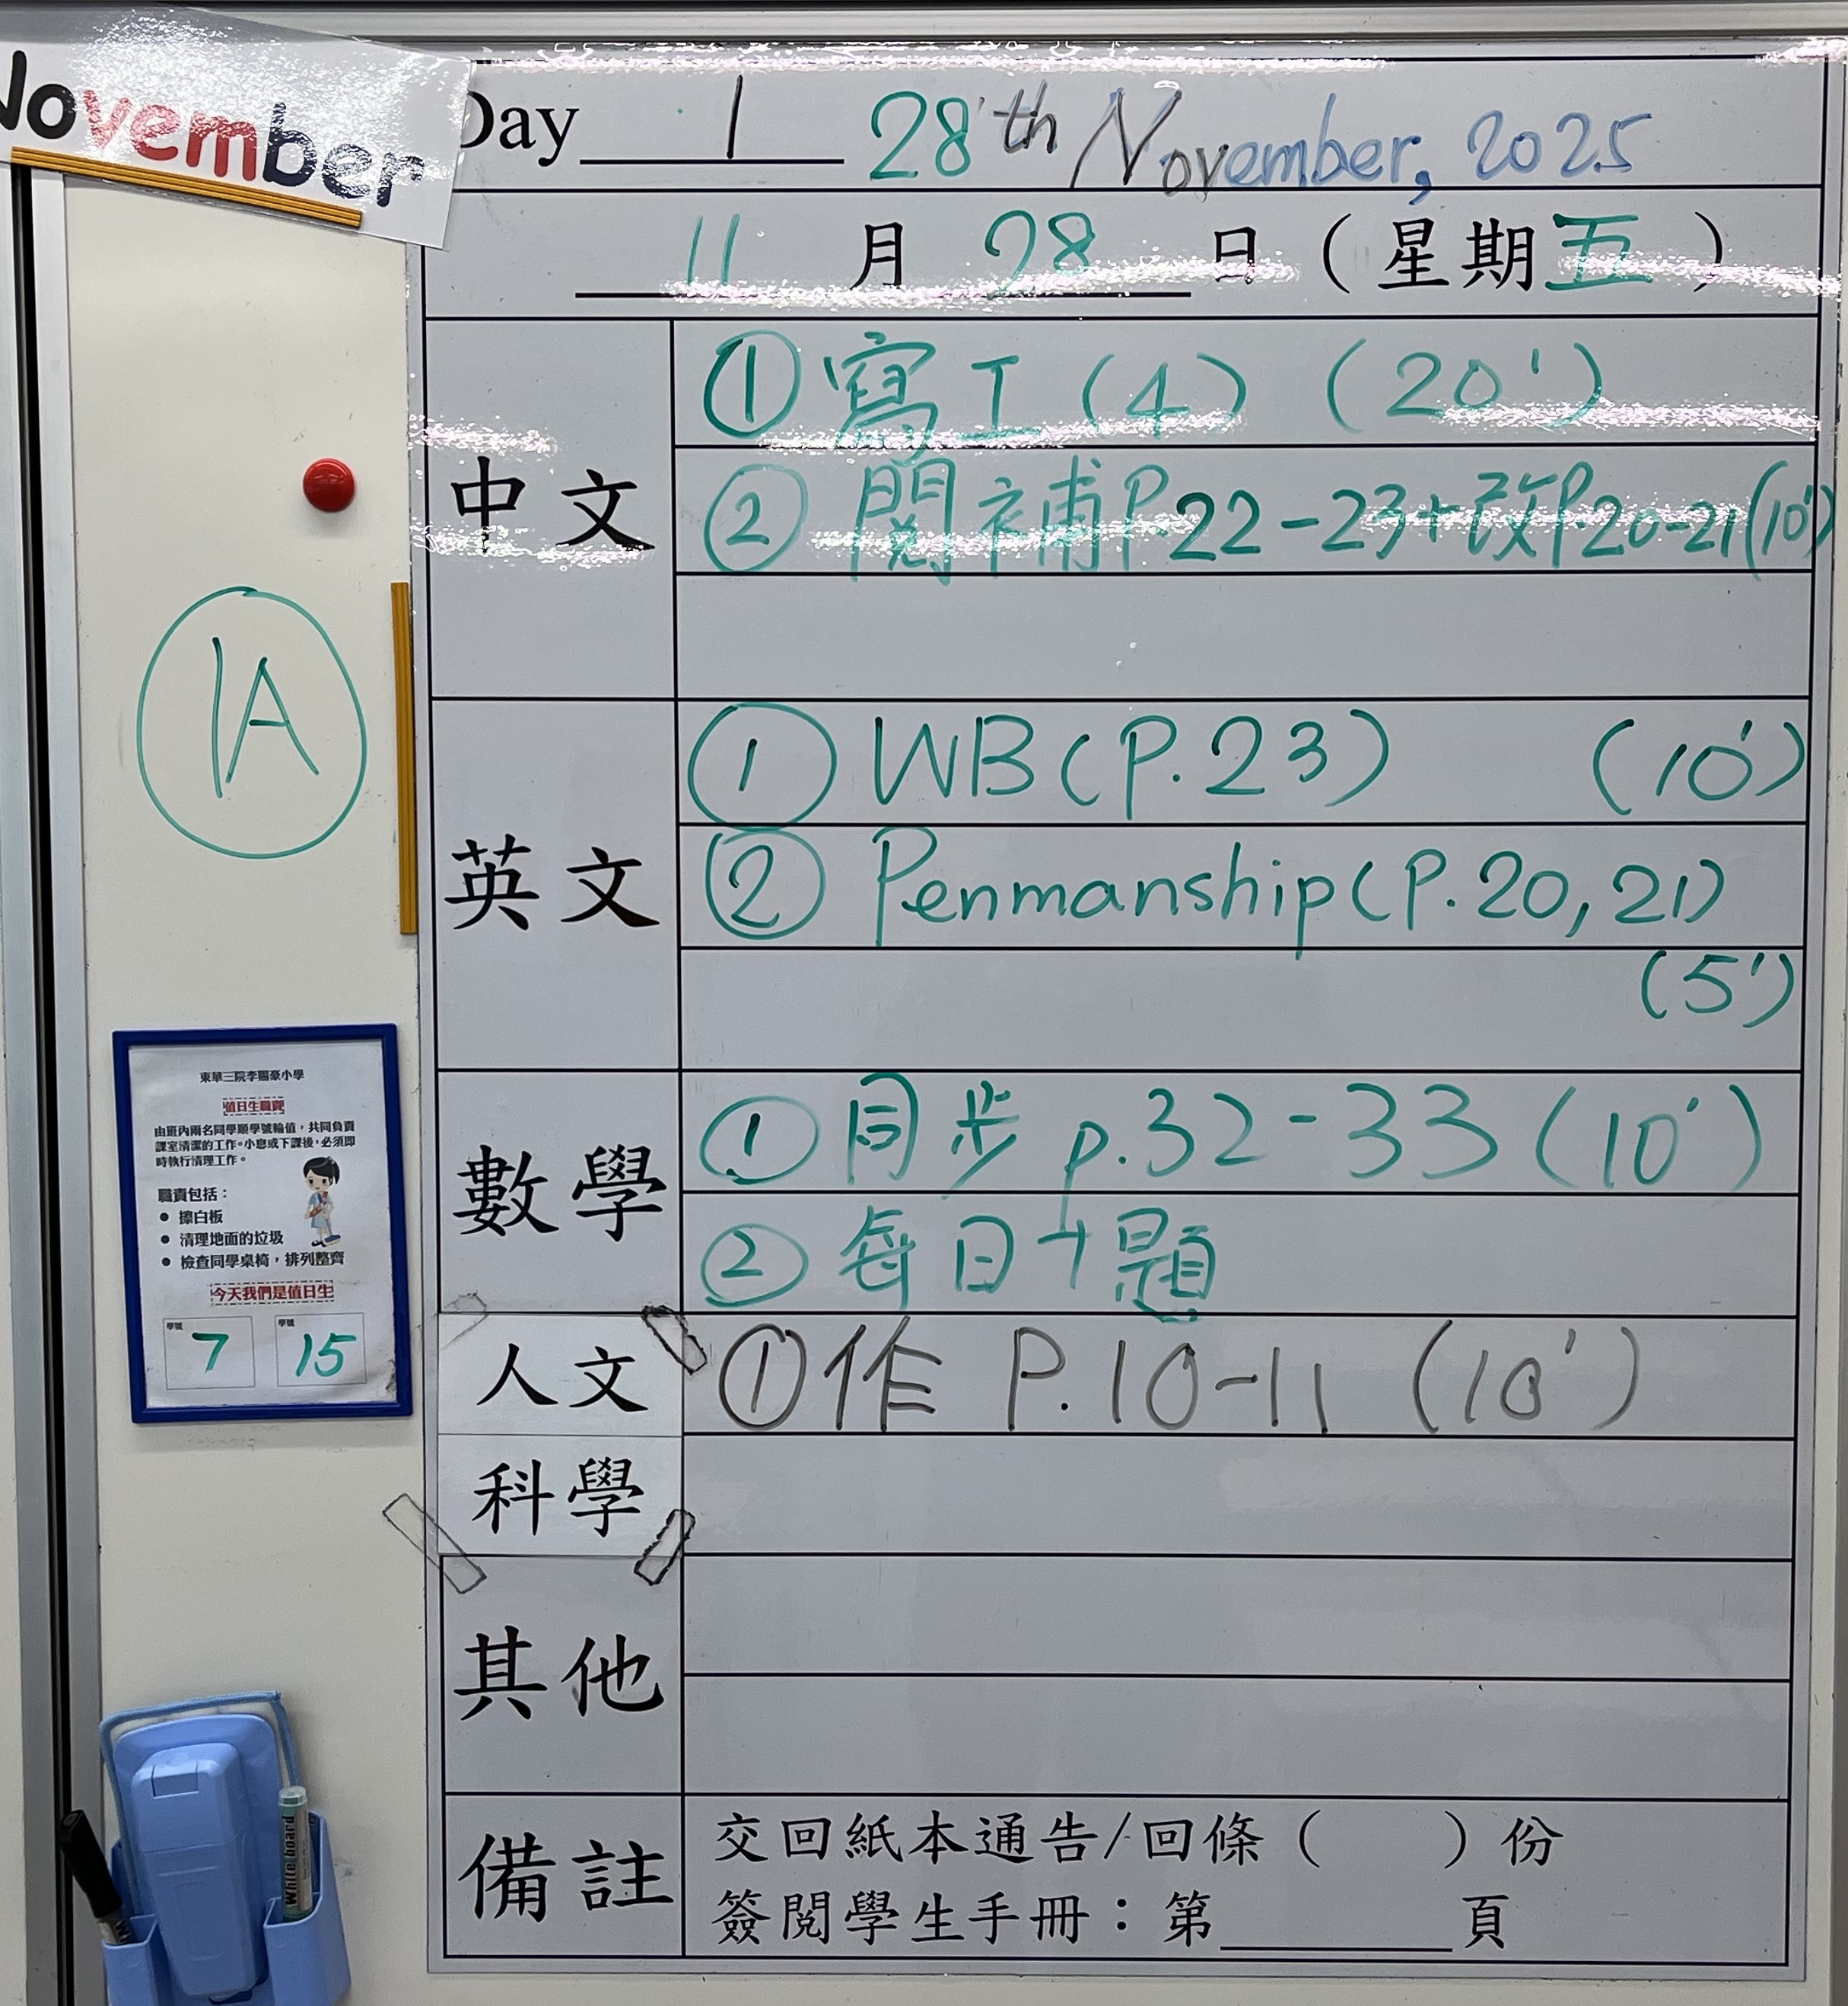 November
Day 1 28th November, 2025
11 月 28 日（星期五）
中文
① 寫工(4) (20')
② 閱補P.22-23+改P.20-21(10')
1A
英文
① WB(P.23) (10')
② Penmanship(P.20,21)
(5')
數學
① 同步 p.32-33 (10')
② 每日十題
人文
① 作 P.10-11 (10')
科學
其他
備註
交回紙本通告/回條（ ）份
簽閱學生手冊：第 頁
東華三院李賜豪小學
值日生職責
由班內兩名同學順學號輪值，共同負責
課室清潔的工作。小息或下課後，必須即
時執行清理工作。
職責包括：
● 擦白板
● 清理地面的垃圾
● 檢查同學桌椅，排列整齊
今天我們是值日生
學號 學號
7 15
White board